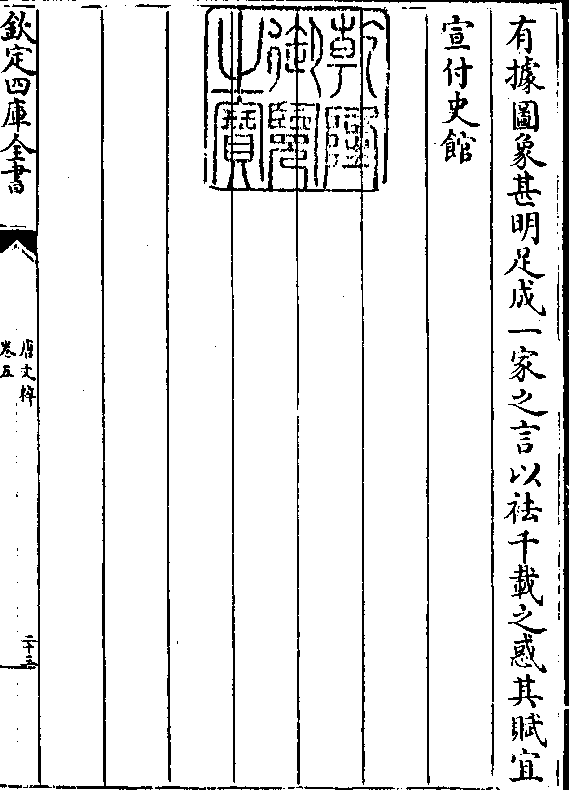 有據圖象甚明足成一家之言以祛千載之惑其賦宜
宣付史館
乾隆御覽之寶
欽定四庫全書
唐文粹
卷五
二十三